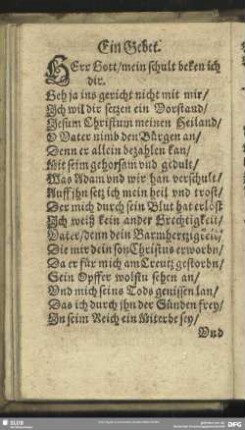 Ein Gebet.
HErr Gott/mein schult beken ich
dir.
Geh ja ins gericht nicht mit mir/
Ich wil dir setzen ein Vorstand/
Jesum Christum meinen Heiland/
O Vater nimb den Bürgen an/
Denn er allein bezahlen kan/
Mit seim gehorsam vnd gedult/
Was Adam vnd wir han verschult/
Auff jhn setz ich mein heil vnd trost/
Der mich durch sein Blut hat erlöst
Ich weiß kein ander Grechtigkeit/
Vater/denn dein Barmhertzigkeit/
Die mir dein son Christus erworbn/
Da er für mich am Creutz gestorbn/
Sein Opffer wolstu sehen an/
Vnd mich seins Tods genissen lan/
Das ich durch jhn der Sünden frey/
In seim Reich ein Miterbe sey/
Vnd
SLUB
DFG